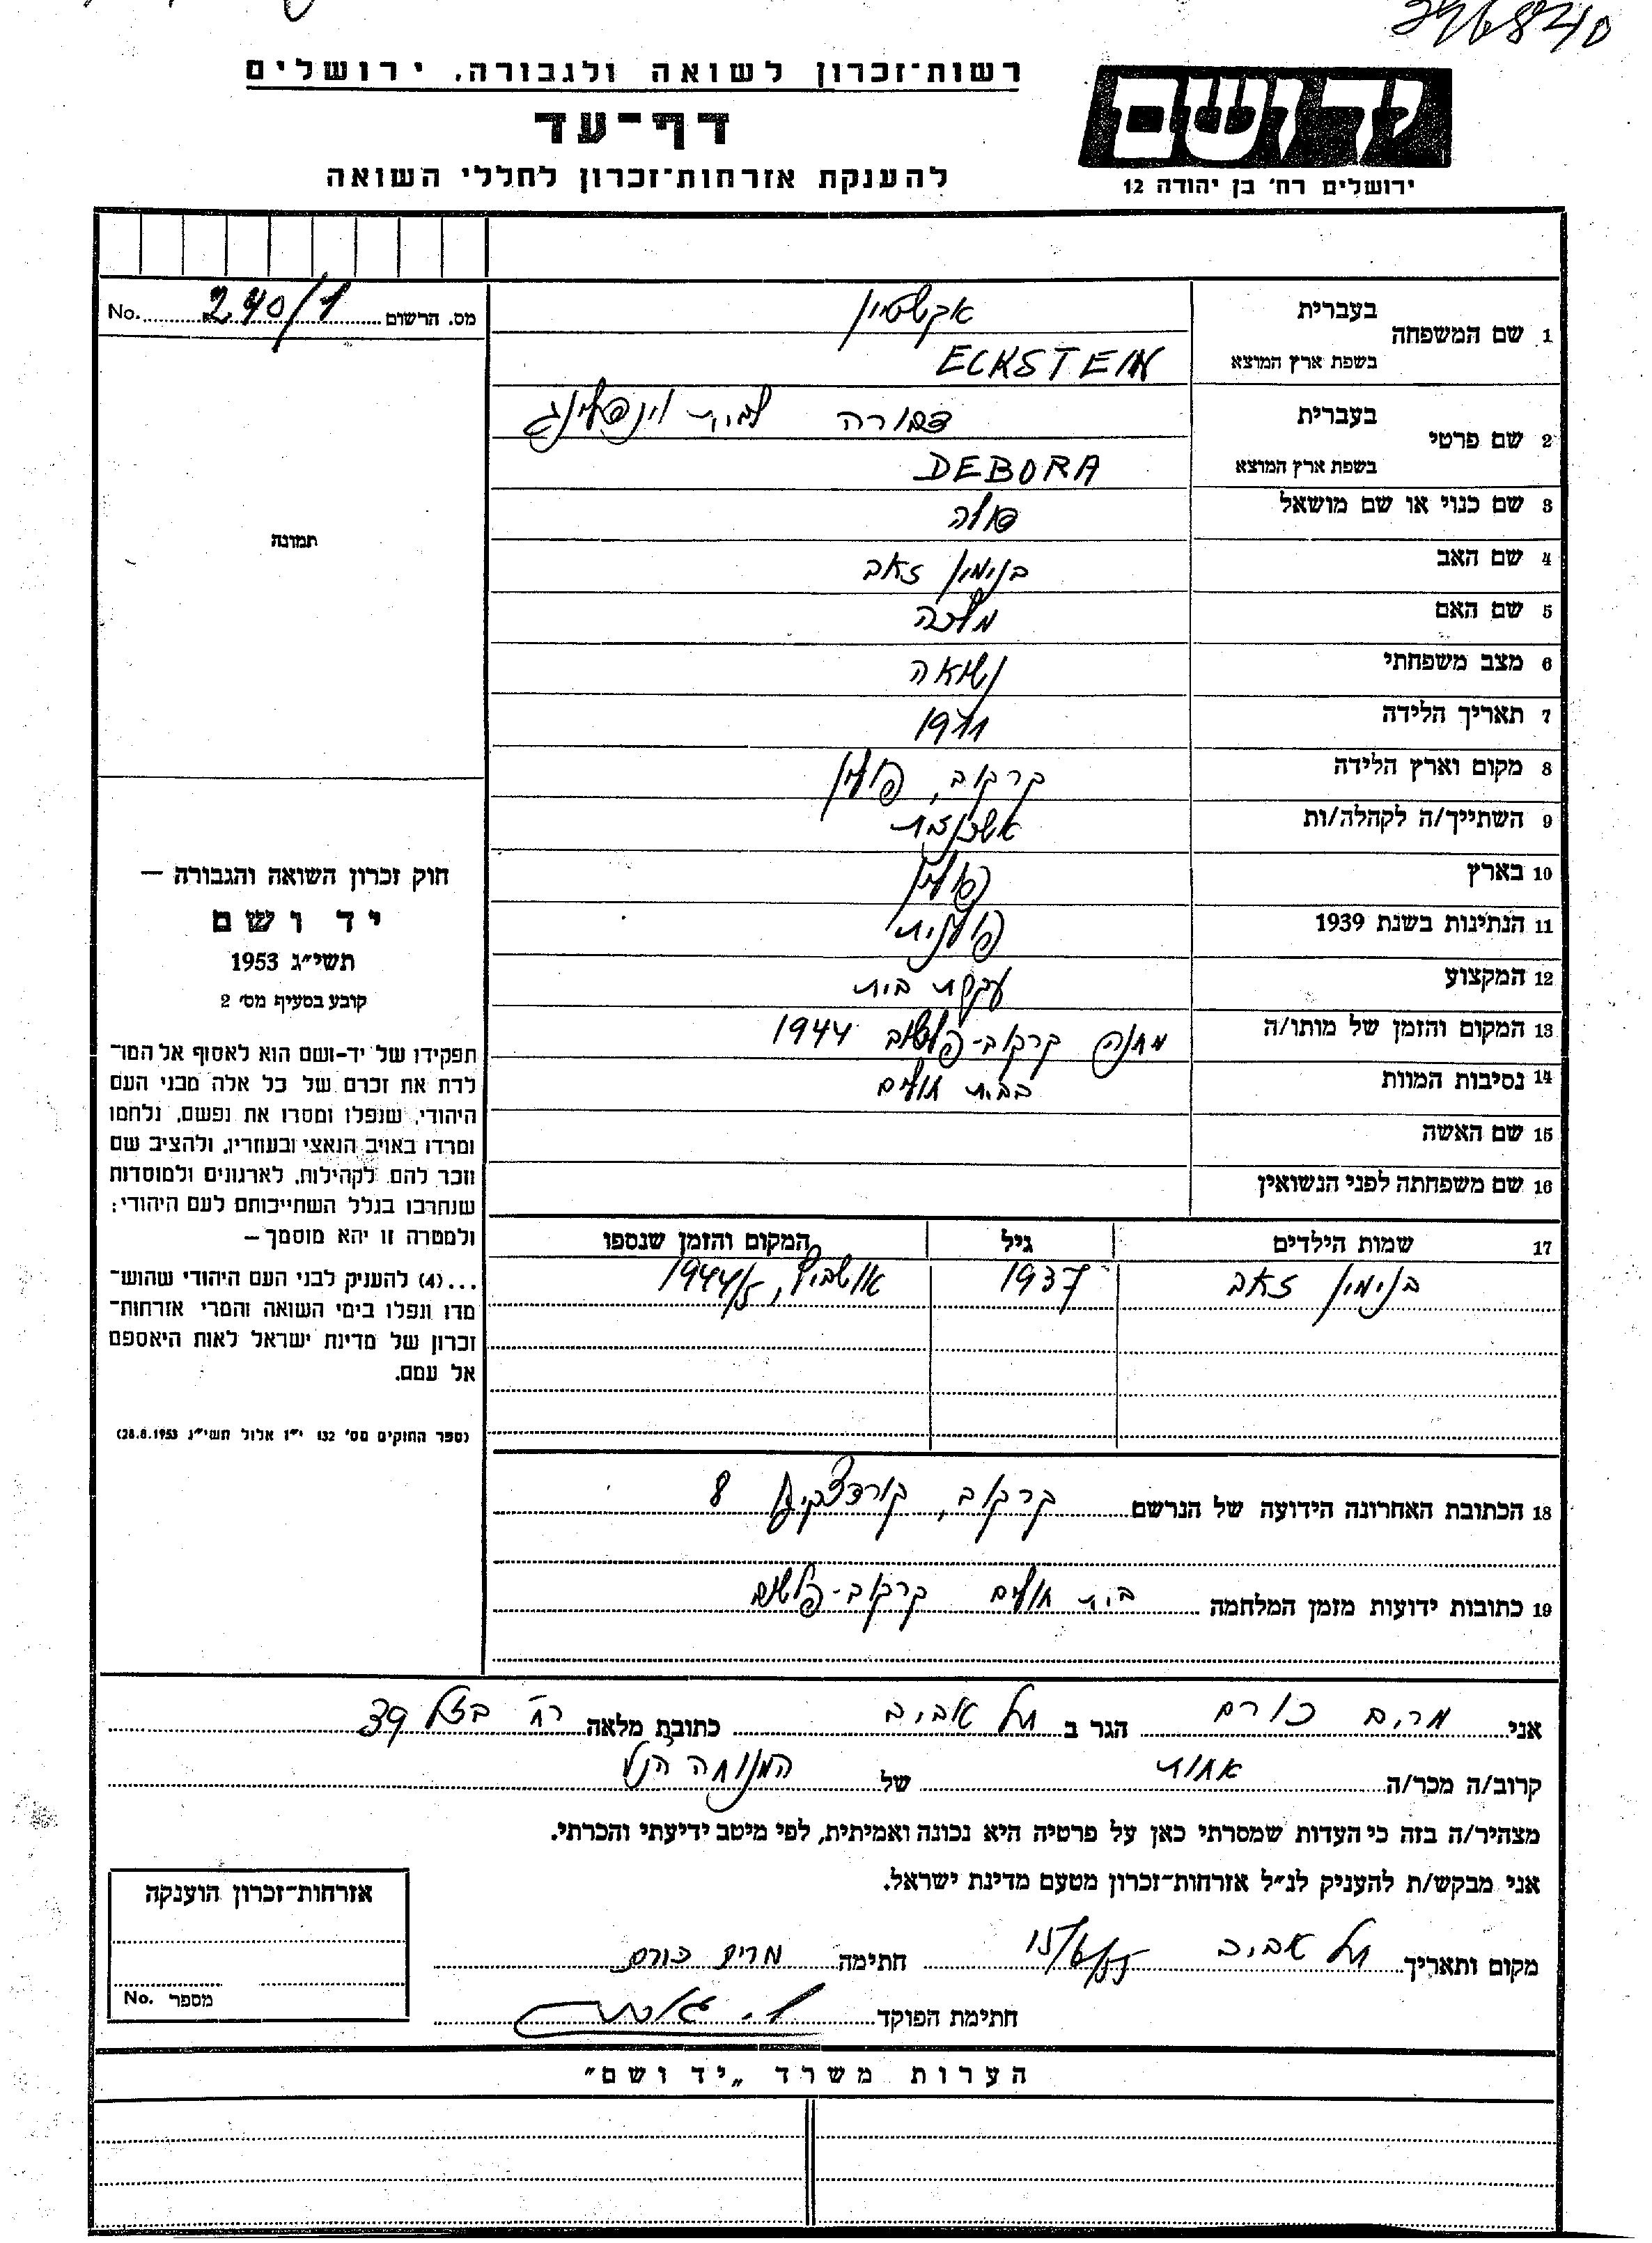 רשות־זכרון לשואה ולגבורה, ירושלים
דף־עד
להענקת אזרחות־זכרון לחללי השואה
ידושם
ירושלים רח' בן יהודה 12
מס. הרשום 240/1 No.
1 שם המשפחה
בעברית אקשטיין
בשפת ארץ המוצא ECKSTEIN
2 שם פרטי
בעברית דבורה לבית
בשפת ארץ המוצא DEBORA
3 שם כנוי או שם מושאל
4 שם האב בנימין זאב
5 שם האם מלכה
6 מצב משפחתי נשואה
7 תאריך הלידה 1911
8 מקום וארץ הלידה קרקוב, פולין
9 השתייך/ה לקהלה/ות אשכנזית
10 בארץ פולין
11 הנתינות בשנת 1939 פולנית
12 המקצוע עקרת בית
13 המקום והזמן של מותו/ה מחנה קרקוב-פלשוב 1944
14 נסיבות המוות בבית חולים
15 שם האשה
16 שם משפחתה לפני הנשואין
17 שמות הילדים גיל המקום והזמן שנספו
בנימין זאב 1937 אושביץ, 1944/5
18 הכתובת האחרונה הידועה של הנרשם קרקוב, 8
19 כתובות ידועות מזמן המלחמה בית חולים קרקוב-פלשוב
תמונה
חוק זכרון השואה והגבורה —
יד ושם
תשי״ג 1953
קובע בסעיף מס' 2
תפקידו של יד-ושם הוא לאסוף אל המו־
לדת את זכרם של כל אלה מבני העם
היהודי, שנפלו ומסרו את נפשם, נלחמו
ומרדו באויב הנאצי ובעוזריו, ולהציב שם
וזכר להם, לקהילות, לארגונים ולמוסדות
שנחרבו בגלל השתייכותם לעם היהודי;
ולמטרה זו יהא מוסמך —
...(4) להעניק לבני העם היהודי שהוש־
מדו ונפלו בימי השואה והמרי אזרחות־
זכרון של מדינת ישראל לאות היאספם
אל עמם.
(ספר החוקים מס' 132 י״ז אלול תשי״ג 28.8.1953)
אני מרים כורם הגר ב תל אביב כתובת מלאה רח' בזל 39
קרוב/ה מכר/ה אחות של המנוחה הנ"ל
מצהיר/ה בזה כי העדות שמסרתי כאן על פרטיה היא נכונה ואמיתית, לפי מיטב ידיעתי והכרתי.
אני מבקש/ת להעניק לנ״ל אזרחות־זכרון מטעם מדינת ישראל.
מקום ותאריך תל אביב חתימה מרים כורם
חתימת הפוקד
אזרחות־זכרון הוענקה
מספר No.
הערות משרד „יד ושם"